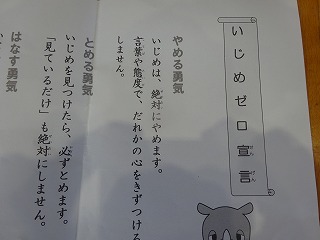 いじめゼロ宣言
やめる勇気
いじめは、絶対にやめます。
言葉や態度で、だれかの心をきずつける
しません。
とめる勇気
いじめを見つけたら、必ずとめます。
「見ているだけ」も絶対にしません。
はなす勇気